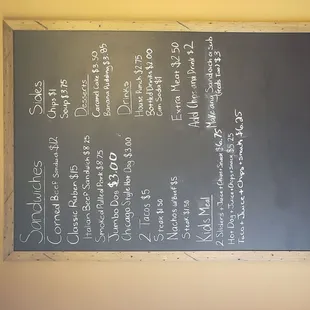 Sandwiches
Corned Beef Sandwich $12
Classic Ruben $15
Italian Beef Sandwich $8.25
Smoked Pulled Pork $8.75
Jumbo Dog $3.00
Chicago Style Hot Dog $3.00
2 Tacos $5
Steak $1.50
Nachos w/Beef $5
Steak $1.50
Kids Meal
2 Sliders + Juice + Chips + Snack $6.75
Hot Dog + Juice + Chips + Snack $5.25
Taco + Juice + Chips + snack $6.25
Sides
Chips $1
Soup $3.75
Desserts
Caramel Cake $3.50
Banana Pudding $3.85
Drinks
House Punch $2.75
Bottled Drinks $2.00
Can Soda $1
Extra Meat $2.50
Add Chips and Drink $2
Make any Sandwich a Sub
(Feeds Two) $3